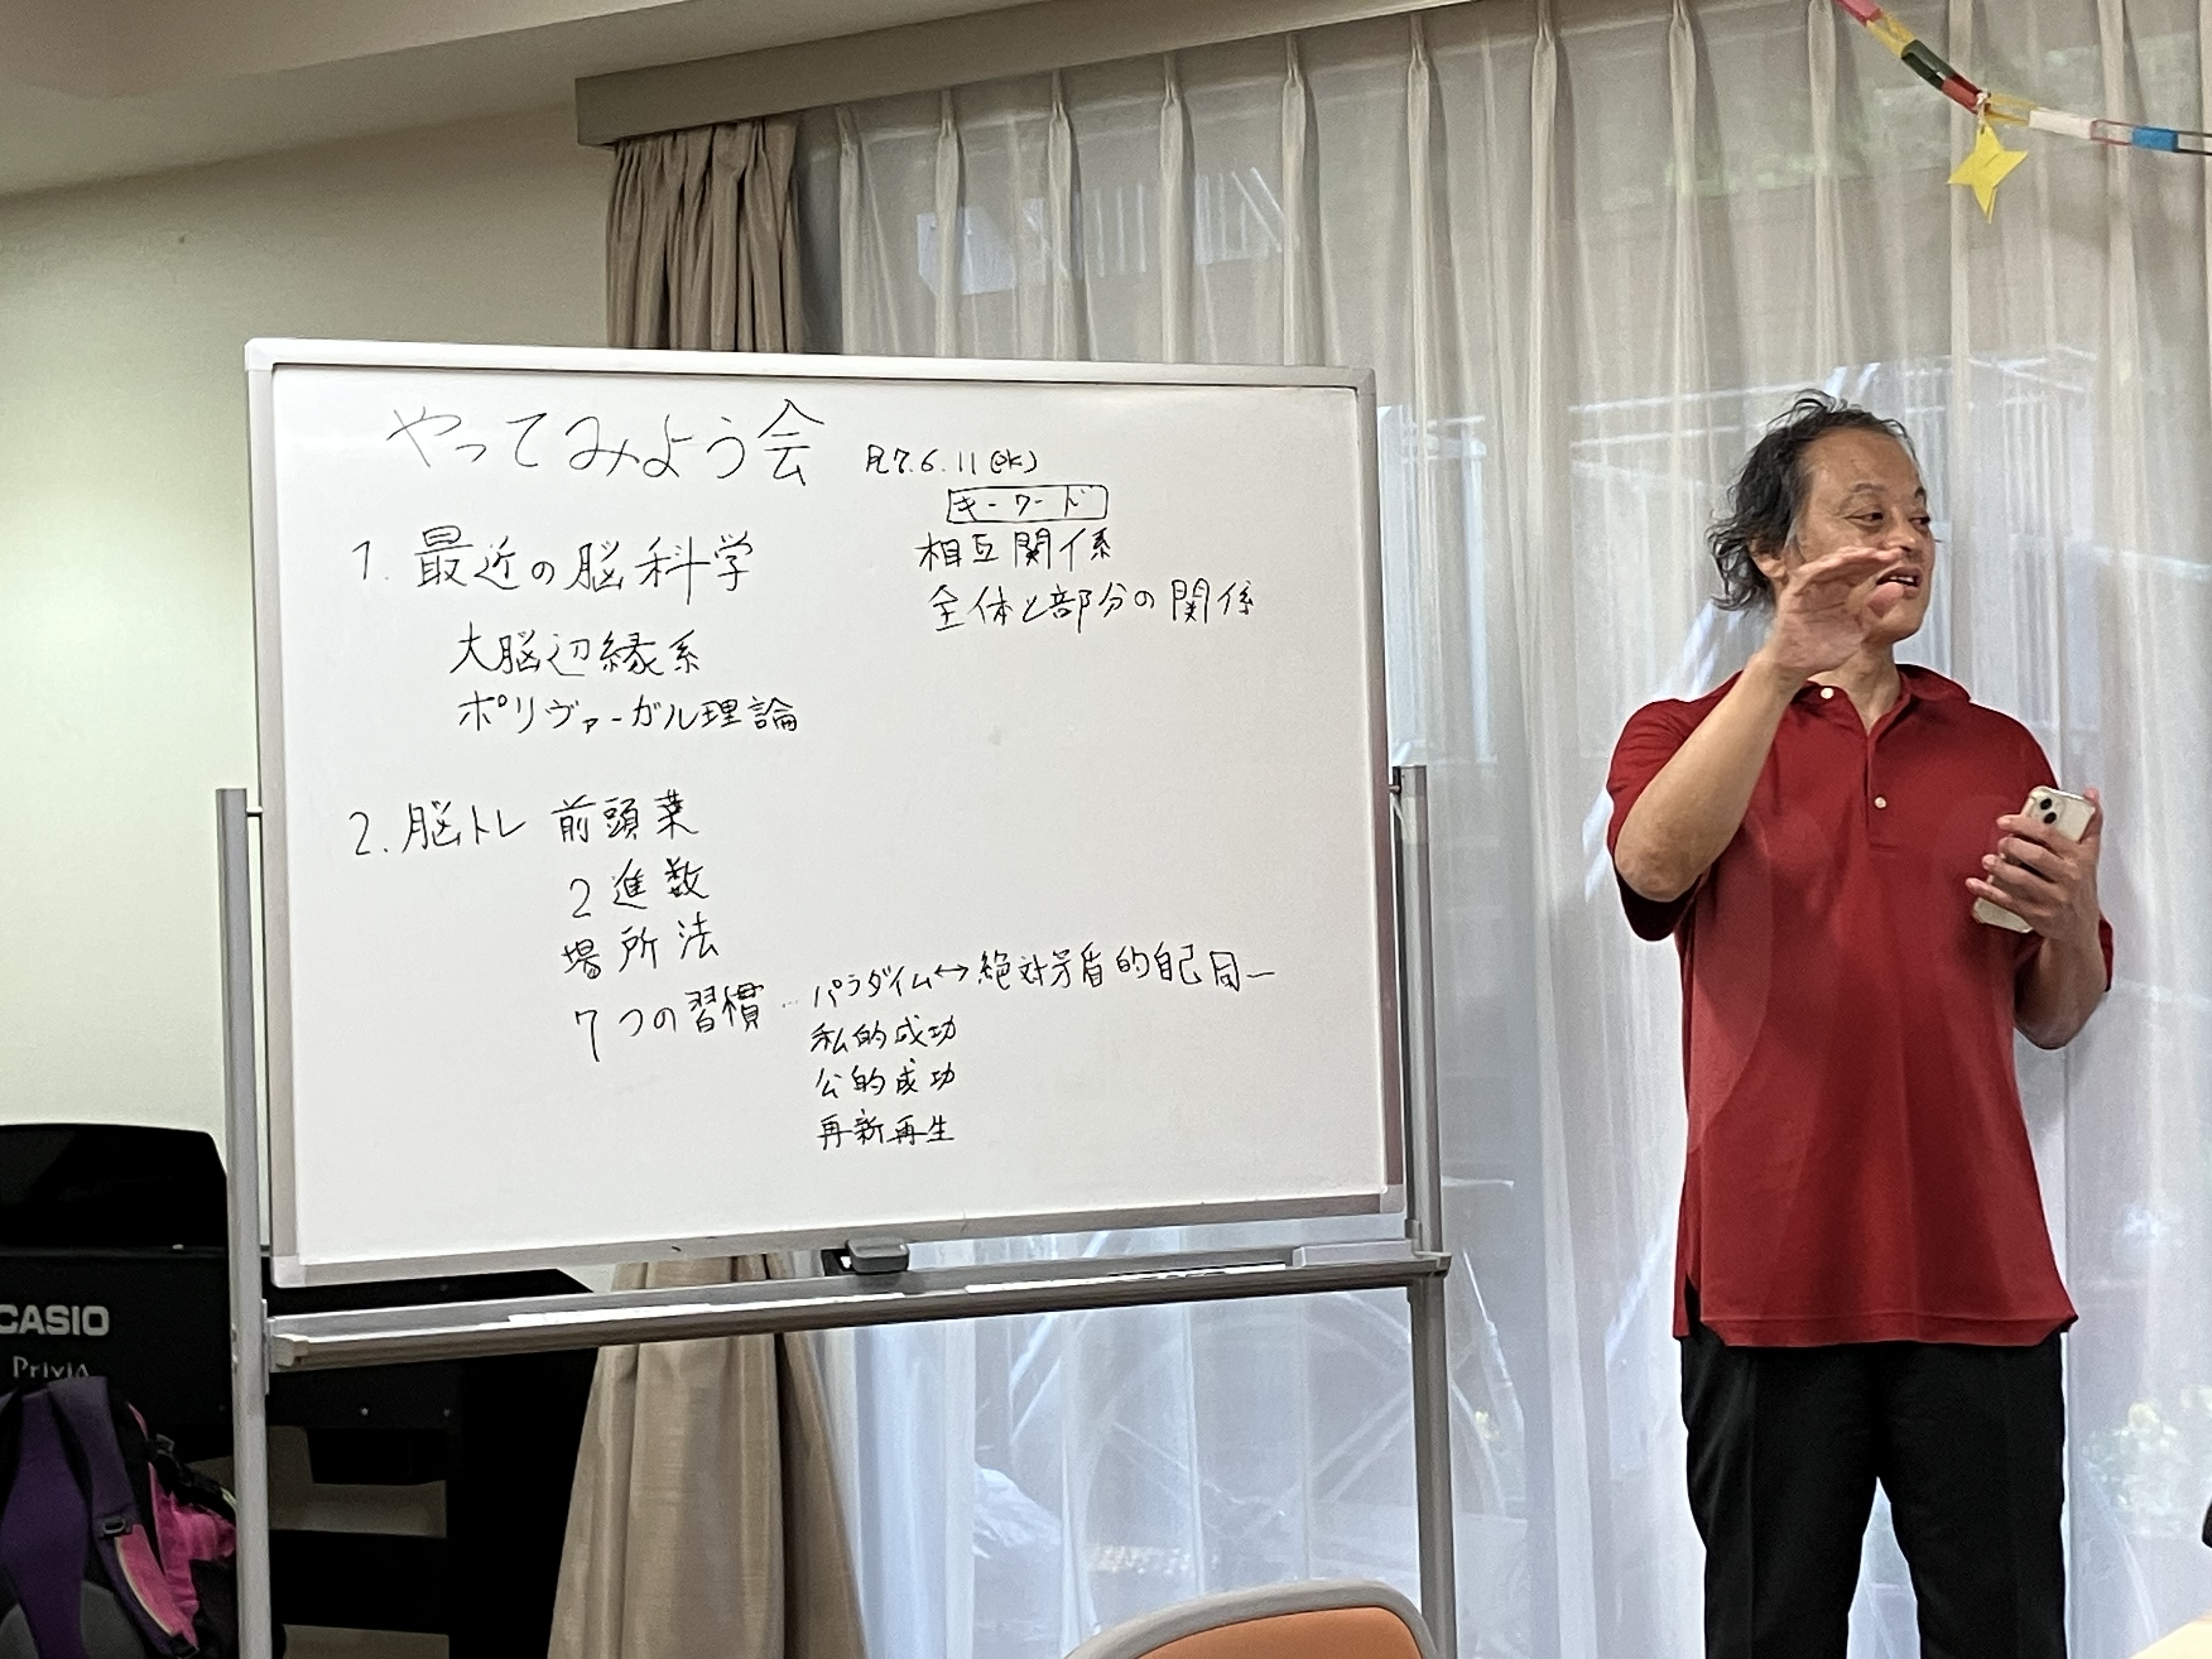 やってみよう会 R7.6.11(水)
キーワード
相互関係
全体と部分の関係
1. 最近の脳科学
大脳辺縁系
ポリヴァーガル理論
2. 脳トレ 前頭葉
2進数
場所法
7つの習慣 … パラダイム↔絶対矛盾的自己同一
私的成功
公的成功
再新再生
CASIO
Privia